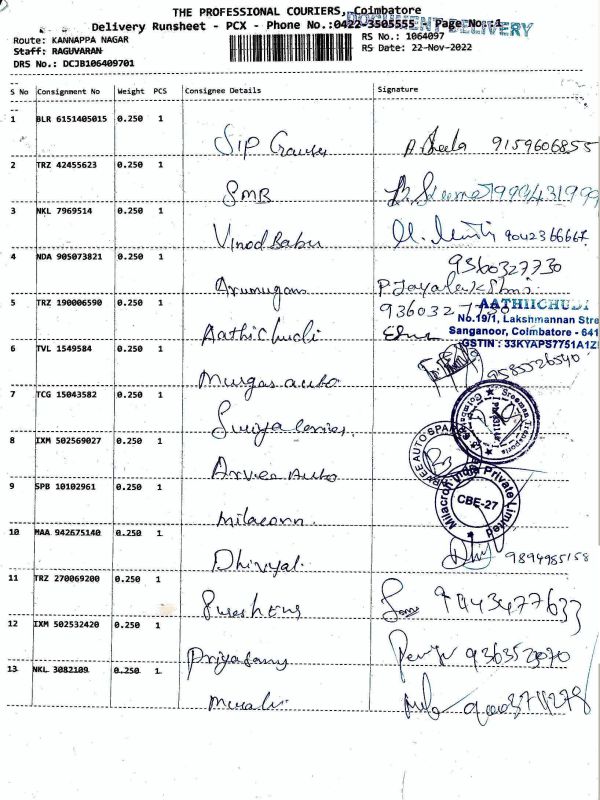 THE PROFESSIONAL COURIERS, Coimbatore
DOCUMENT DELIVERY
Delivery Runsheet - PCX - Phone No.:0422-3505555 Page No.:1
Route: KANNAPPA NAGAR RS No.: 1064097
Staff: RAGUVARAN RS Date: 22-Nov-2022
DRS No.: DCJB106409701
S No Consignment No Weight PCS Consignee Details Signature
1 BLR 6151405015 0.250 1
SIP A. Sheela 9159606855
2 TRZ 42455623 0.250 1
SMB
3 NKL 7969514 0.250 1
Vinod Babu 9042366667
4 NDA 905073821 0.250 1
9360327730
Arumugam P. Jayalakshmi
5 TRZ 190006590 0.250 1
AATHIICHUDI
No.19/1, Lakshmannan Stre
Aathi Chudi Sanganoor, Coimbatore - 641
GSTIN : 33KYAPS7751A1Z
6 TVL 1549584 0.250 1
Murgas auto 9585526540
7 TCG 15043582 0.250 1
Suriya
8 IXM 502569027 0.250 1
Arvee Auto
9 SPB 10102961 0.250 1
Milacron Milacron India Private Limited
CBE-27
10 MAA 942675140 0.250 1
Dhivyal 9894985158
11 TRZ 270069200 0.250 1
Suresh 9443477633
12 IXM 502532420 0.250 1
Priyadamy
13 NKL 3082109 0.250 1
Murali